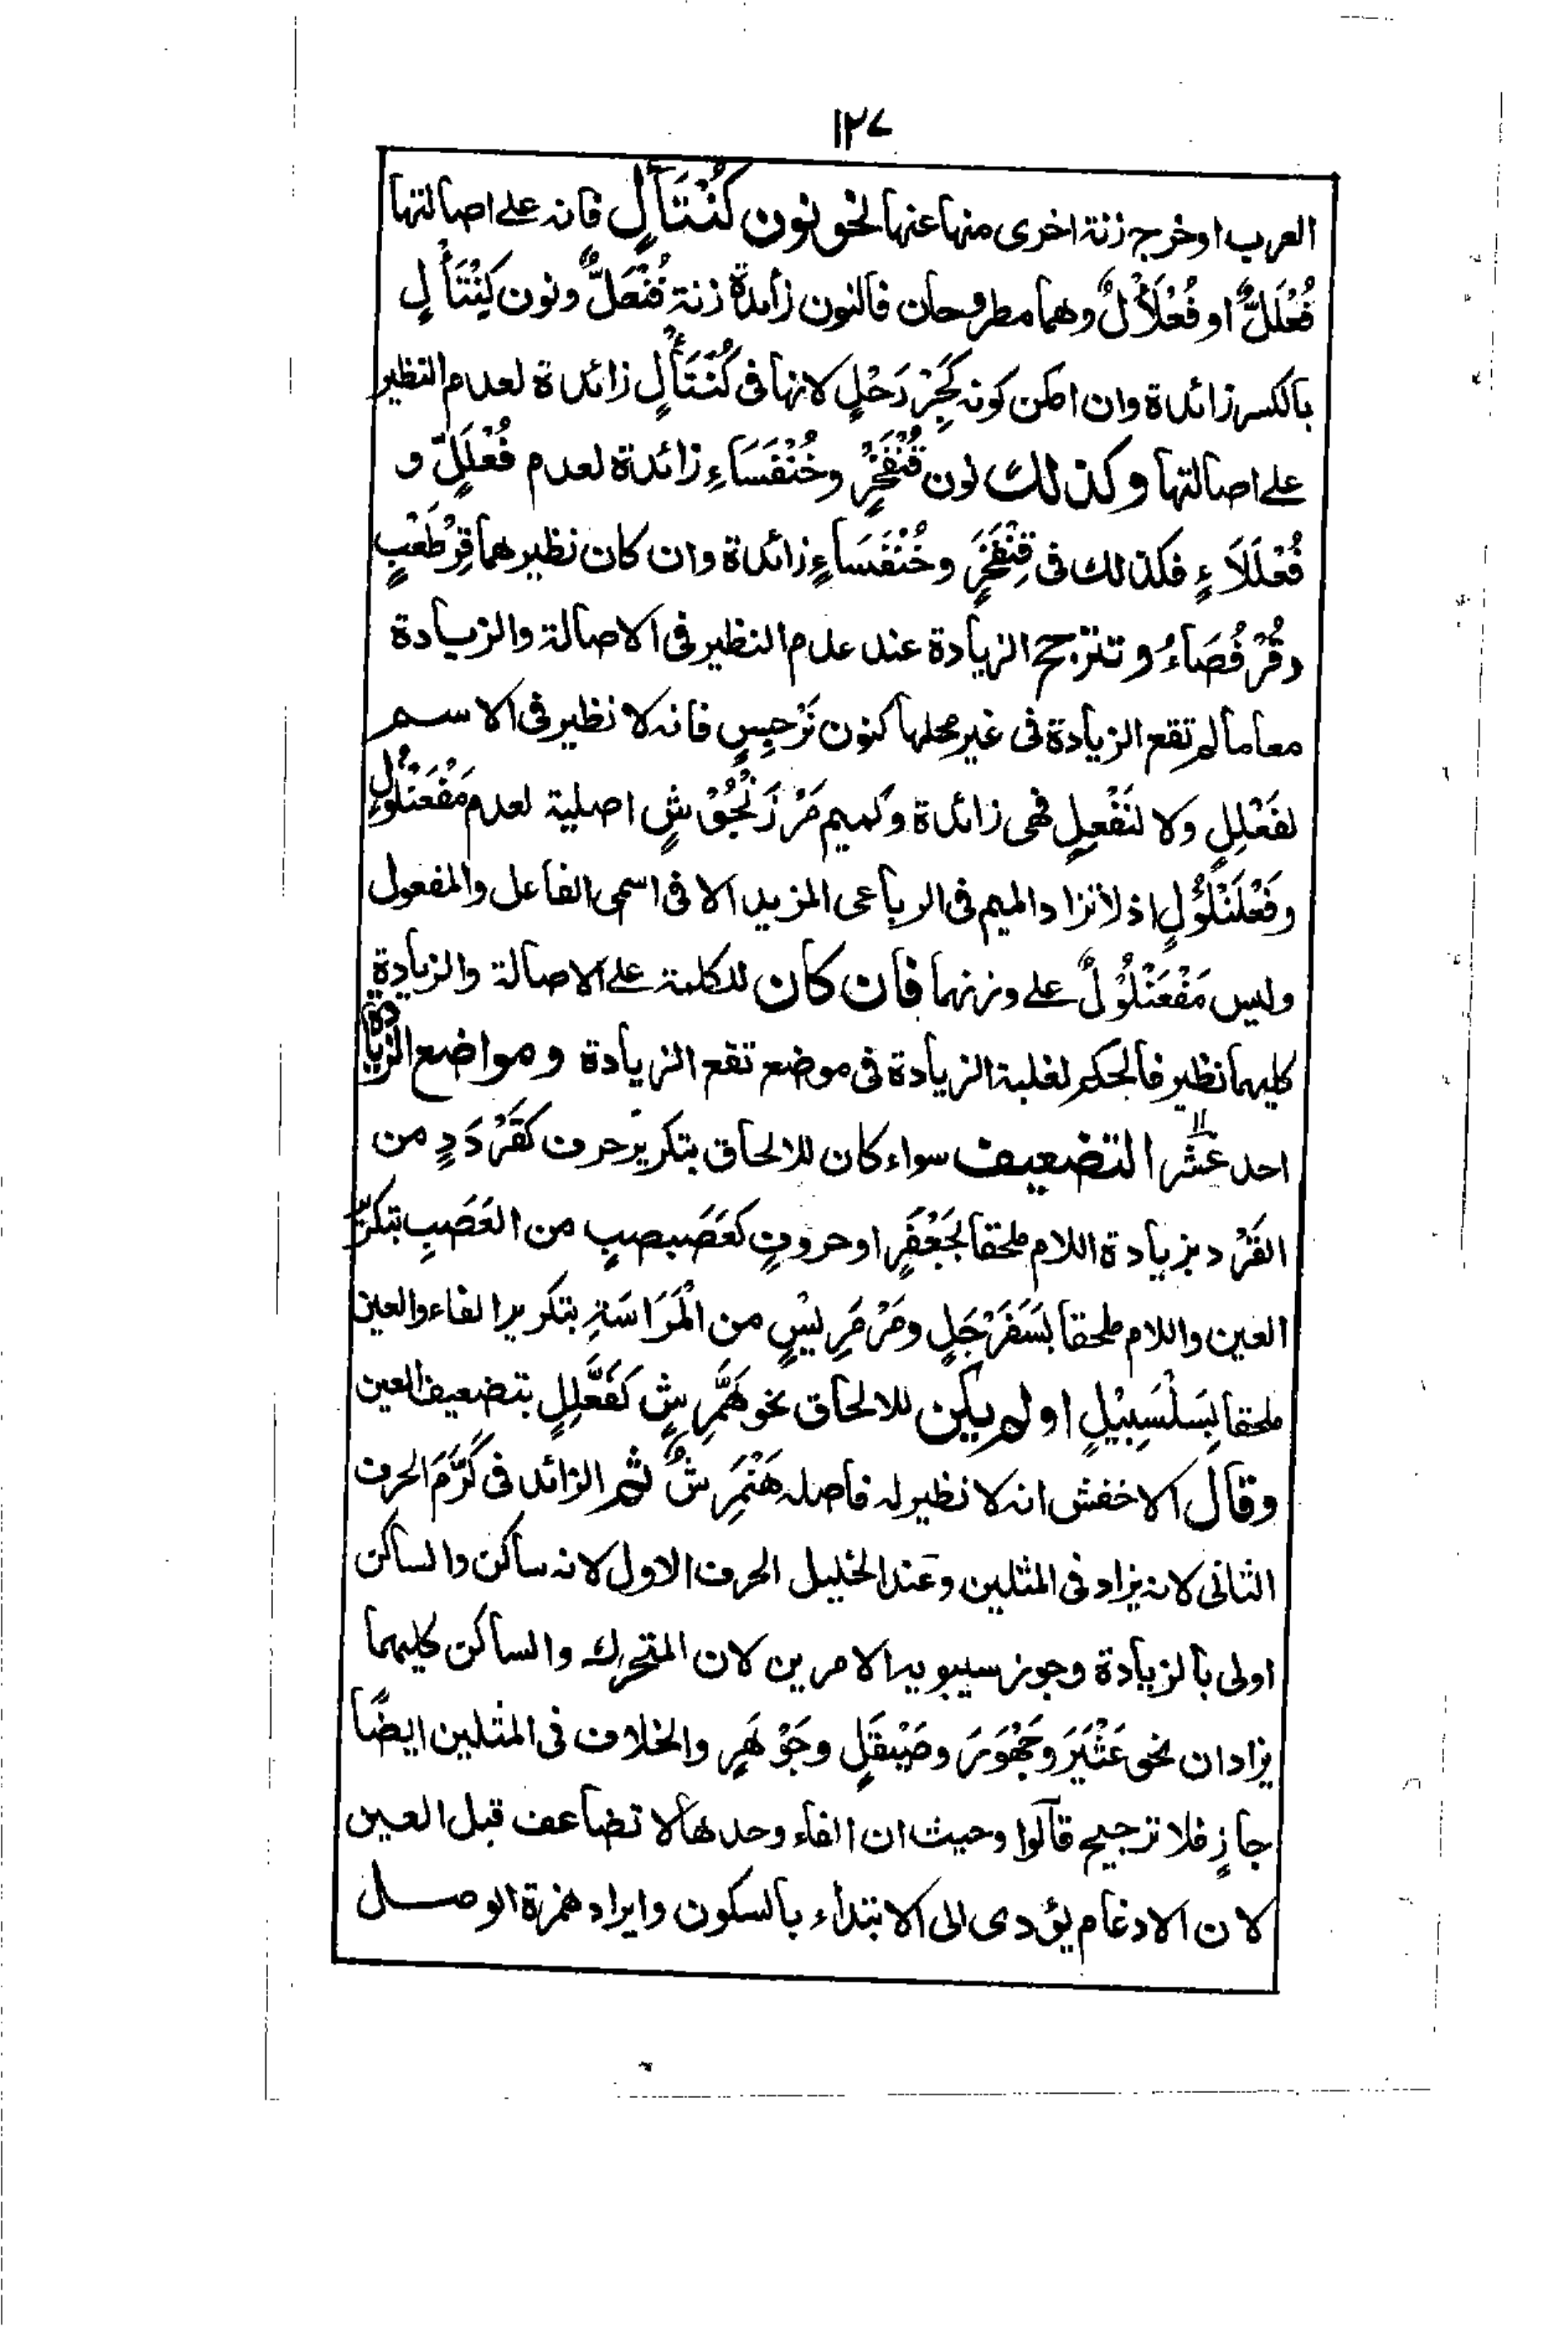 ١٢٧
العرب او خرج زنة اخرى منها عنها لنحو نون كُنْتَأْلٍ فانه على اصالتها
فُعْلَلٌّ او فُعْلَأْلٌ وهما مطروحان فالنون زائدة زنة فُنْعَلٌّ ونون كِنْتَأْلٍ
بالكسر زائدة وان امكن كونه كَجِرْدَحْلٍ لانها فى كُنْتَأْلٍ زائدة لعدم النظير
على اصالتها وكذلك نون قُنْفَخْرٍ وخُنْفَسَاءِ زائدة لعدم فُعْلَلٍّ و
فُعْلَلَاءٍ فكذلك فى قِنْفَخْرٍ وخُنْفُسَاءٍ زائدة وان كان نظيرهما قِرْطَعْبٍ
وقُرْفُصَاءُ وتترجح الزيادة عند عدم النظير فى الاصالة والزيادة
معا ما لم تقع الزيادة فى غير محلها كنون نَرْجِسٍ فانه لا نظير فى الاسم
لفَعْلِلٍ ولا لنَفْعِلٍ فهى زائدة وكميم مَرْزَنْجُوْشٍ اصلية لعدم مَفْعَنْلُوْلٍ
وفَعْلَنْلُوْلٍ اذ لا تزاد الميم فى الرباعى المزيد الا فى اسمى الفاعل والمفعول
وليس مَفْعَنْلُوْلٌ على وزنهما فان كان للكلمة على الاصالة والزيادة
كليهما نظير فالحكم لغلبة الزيادة فى موضع تقع الزيادة ومواضع الزيادة
احد عَشَر ١١ التضعيف سواء كان للالحاق بتكرير حرف كقَرْدَدٍ من
القَرْد بزيادة اللام ملحقا بجَعْفَرٍ او حروفٍ كعَصَبصبٍ من العَصَبِ بتكرير
العين واللام ملحقا بسَفَرْجَلٍ ومَرْمَرِيْسٍ من الْمَرَاسَةِ بتكرير الفاء والعين
ملحقا بِسَلْسَبِيْلٍ او لم يكن للالحاق نحو هَمَّرِشٍ كَفَعَّلِلٍ بتضعيف العين
وقال الاخفش انه لا نظير له فاصله هَنْمَرِشٌ ثم الزائد فى كَرَّمَ الحرف
الثانى لانه يزاد فى المثلين وعند الخليل الحرف الاول لانه ساكن والساكن
اولى بالزيادة وجوز سيبويه الامرين لان المتحرك والساكن كليهما
يزادان نحو عَثْيَرَ وجَهْوَرَ وصَيْقَلٍ وجَوْهَرٍ والخلاف فى المثلين ايضًا
جازٍ فلا ترجيح قالوا وحيث ان الفاء وحدها لا تضاعف قبل العين
لان الادغام يؤدى الى الابتداء بالسكون وايراد همزة الوصل